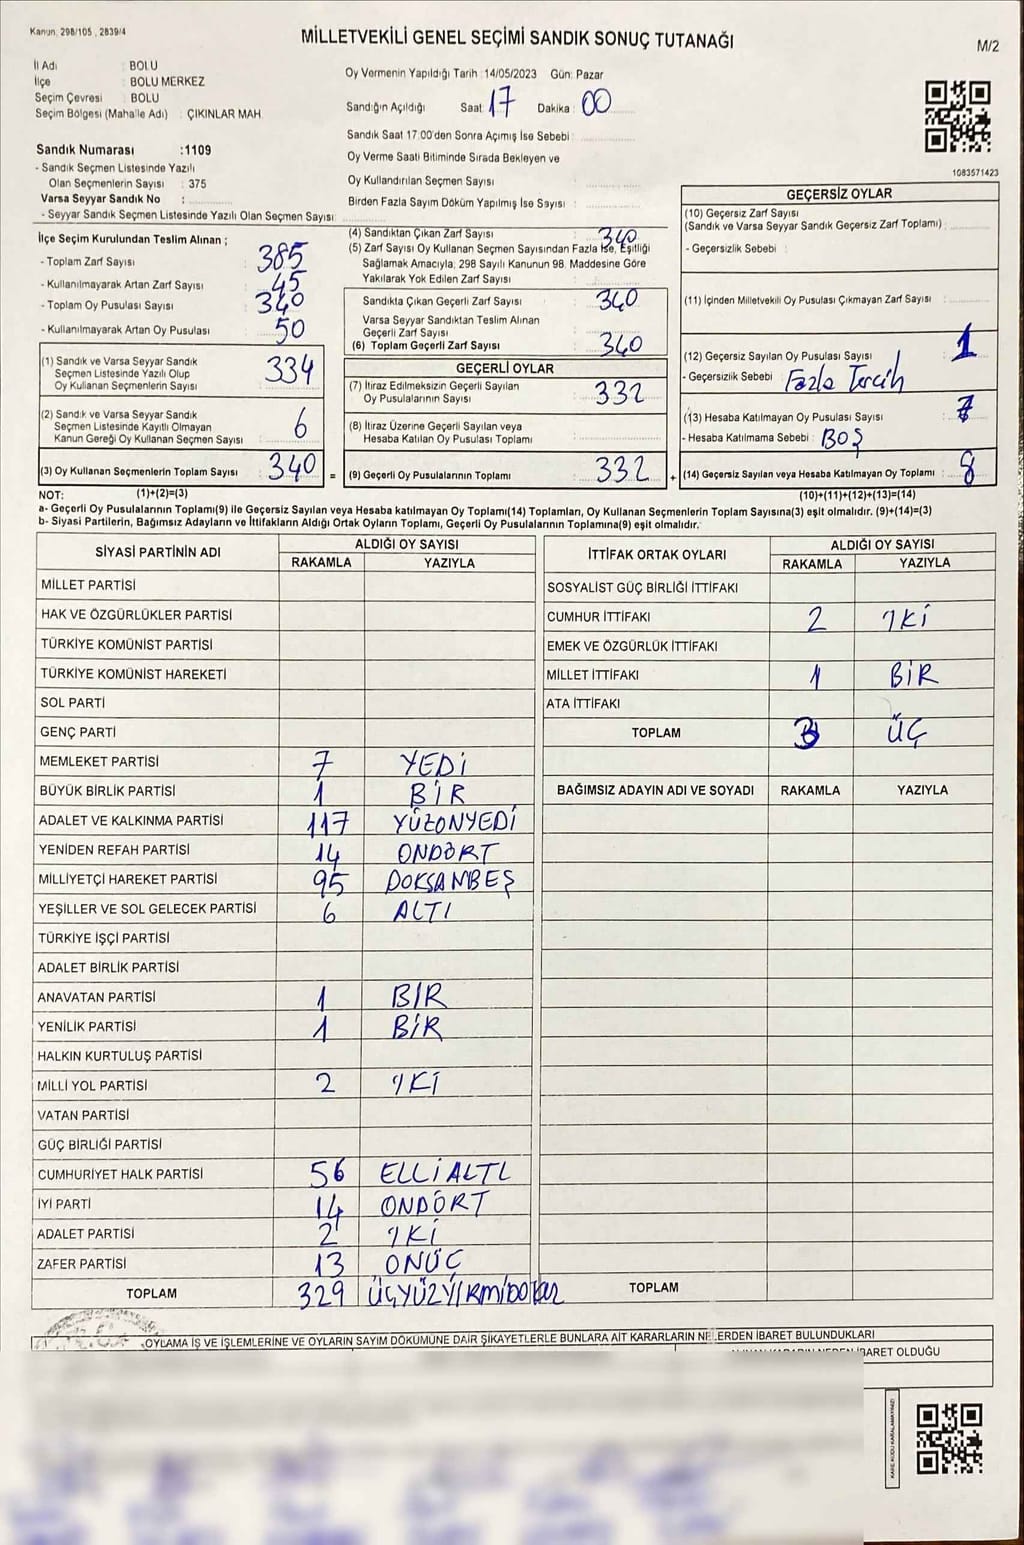 Kanun; 298/105 , 2839/4
MİLLETVEKİLİ GENEL SEÇİMİ SANDIK SONUÇ TUTANAĞI
M/2
İl Adı : BOLU
İlçe : BOLU MERKEZ
Seçim Çevresi : BOLU
Seçim Bölgesi (Mahalle Adı) : ÇIKINLAR MAH.
Oy Vermenin Yapıldığı Tarih :14/05/2023 Gün: Pazar
Sandığın Açıldığı Saat: 17 Dakika: 00
Sandık Saat 17:00'den Sonra Açımış İse Sebebi :
Oy Verme Saati Bitiminde Sırada Bekleyen ve
Oy Kullandırılan Seçmen Sayısı :
Birden Fazla Sayım Döküm Yapılmış İse Sayısı :
1083571423
Sandık Numarası :1109
- Sandık Seçmen Listesinde Yazılı
Olan Seçmenlerin Sayısı : 375
Varsa Seyyar Sandık No :
- Seyyar Sandık Seçmen Listesinde Yazılı Olan Seçmen Sayısı:
İlçe Seçim Kurulundan Teslim Alınan ;
- Toplam Zarf Sayısı : 385
- Kullanılmayarak Artan Zarf Sayısı : 45
- Toplam Oy Pusulası Sayısı : 340
- Kullanılmayarak Artan Oy Pusulası : 50
(1) Sandık ve Varsa Seyyar Sandık
Seçmen Listesinde Yazılı Olup
Oy Kullanan Seçmenlerin Sayısı : 334
(2) Sandık ve Varsa Seyyar Sandık
Seçmen Listesinde Kayıtlı Olmayan
Kanun Gereği Oy Kullanan Seçmen Sayısı : 6
(3) Oy Kullanan Seçmenlerin Toplam Sayısı : 340 =
(4) Sandıktan Çıkan Zarf Sayısı : 340
(5) Zarf Sayısı Oy Kullanan Seçmen Sayısından Fazla İse, Eşitliği
Sağlamak Amacıyla, 298 Sayılı Kanunun 98. Maddesine Göre
Yakılarak Yok Edilen Zarf Sayısı :
Sandıkta Çıkan Geçerli Zarf Sayısı : 340
Varsa Seyyar Sandıktan Teslim Alınan
Geçerli Zarf Sayısı :
(6) Toplam Geçerli Zarf Sayısı : 340
GEÇERLİ OYLAR
(7) İtiraz Edilmeksizin Geçerli Sayılan
Oy Pusulalarının Sayısı : 332
(8) İtiraz Üzerine Geçerli Sayılan veya
Hesaba Katılan Oy Pusulası Toplamı :
(9) Geçerli Oy Pusulalarının Toplamı : 332 +
GEÇERSİZ OYLAR
(10) Geçersiz Zarf Sayısı
(Sandık ve Varsa Seyyar Sandık Geçersiz Zarf Toplamı) :
- Geçersizlik Sebebi :
(11) İçinden Milletvekili Oy Pusulası Çıkmayan Zarf Sayısı :
(12) Geçersiz Sayılan Oy Pusulası Sayısı : 1
- Geçersizlik Sebebi : Fazla Tercih
(13) Hesaba Katılmayan Oy Pusulası Sayısı : 7
- Hesaba Katılmama Sebebi : BOŞ
(14) Geçersiz Sayılan veya Hesaba Katılmayan Oy Toplamı : 8
NOT: (1)+(2)=(3) (10)+(11)+(12)+(13)=(14)
a- Geçerli Oy Pusulalarının Toplamı(9) ile Geçersiz Sayılan veya Hesaba katılmayan Oy Toplamı(14) Toplamları, Oy Kullanan Seçmenlerin Toplam Sayısına(3) eşit olmalıdır. (9)+(14)=(3)
b- Siyasi Partilerin, Bağımsız Adayların ve İttifakların Aldığı Ortak Oyların Toplamı, Geçerli Oy Pusulalarının Toplamına(9) eşit olmalıdır.
SİYASİ PARTİNİN ADI ALDIĞI OY SAYISI
RAKAMLA YAZIYLA
MİLLET PARTİSİ
HAK VE ÖZGÜRLÜKLER PARTİSİ
TÜRKİYE KOMÜNİST PARTİSİ
TÜRKİYE KOMÜNİST HAREKETİ
SOL PARTİ
GENÇ PARTİ
MEMLEKET PARTİSİ 7 YEDİ
BÜYÜK BİRLİK PARTİSİ 1 BİR
ADALET VE KALKINMA PARTİSİ 117 YÜZONYEDİ
YENİDEN REFAH PARTİSİ 14 ONDÖRT
MİLLİYETÇİ HAREKET PARTİSİ 95 DOKSANBEŞ
YEŞİLLER VE SOL GELECEK PARTİSİ 6 ALTI
TÜRKİYE İŞÇİ PARTİSİ
ADALET BİRLİK PARTİSİ
ANAVATAN PARTİSİ 1 BİR
YENİLİK PARTİSİ 1 BİR
HALKIN KURTULUŞ PARTİSİ
MİLLİ YOL PARTİSİ 2 İKİ
VATAN PARTİSİ
GÜÇ BİRLİĞİ PARTİSİ
CUMHURİYET HALK PARTİSİ 56 ELLİALTI
İYİ PARTİ 14 ONDÖRT
ADALET PARTİSİ 2 İKİ
ZAFER PARTİSİ 13 ONÜÇ
TOPLAM 329 ÜÇYÜZYİRMİDOKUZ
İTTİFAK ORTAK OYLARI ALDIĞI OY SAYISI
RAKAMLA YAZIYLA
SOSYALİST GÜÇ BİRLİĞİ İTTİFAKI
CUMHUR İTTİFAKI 2 İKİ
EMEK VE ÖZGÜRLÜK İTTİFAKI
MİLLET İTTİFAKI 1 BİR
ATA İTTİFAKI
TOPLAM 3 ÜÇ
BAĞIMSIZ ADAYIN ADI VE SOYADI RAKAMLA YAZIYLA
TOPLAM
OYLAMA İŞ VE İŞLEMLERİNE VE OYLARIN SAYIM DÖKÜMÜNE DAİR ŞİKAYETLERLE BUNLARA AİT KARARLARIN NELERDEN İBARET BULUNDUKLARI
İBARET OLDUĞU
KARE KODU KARALAMAYINIZ!